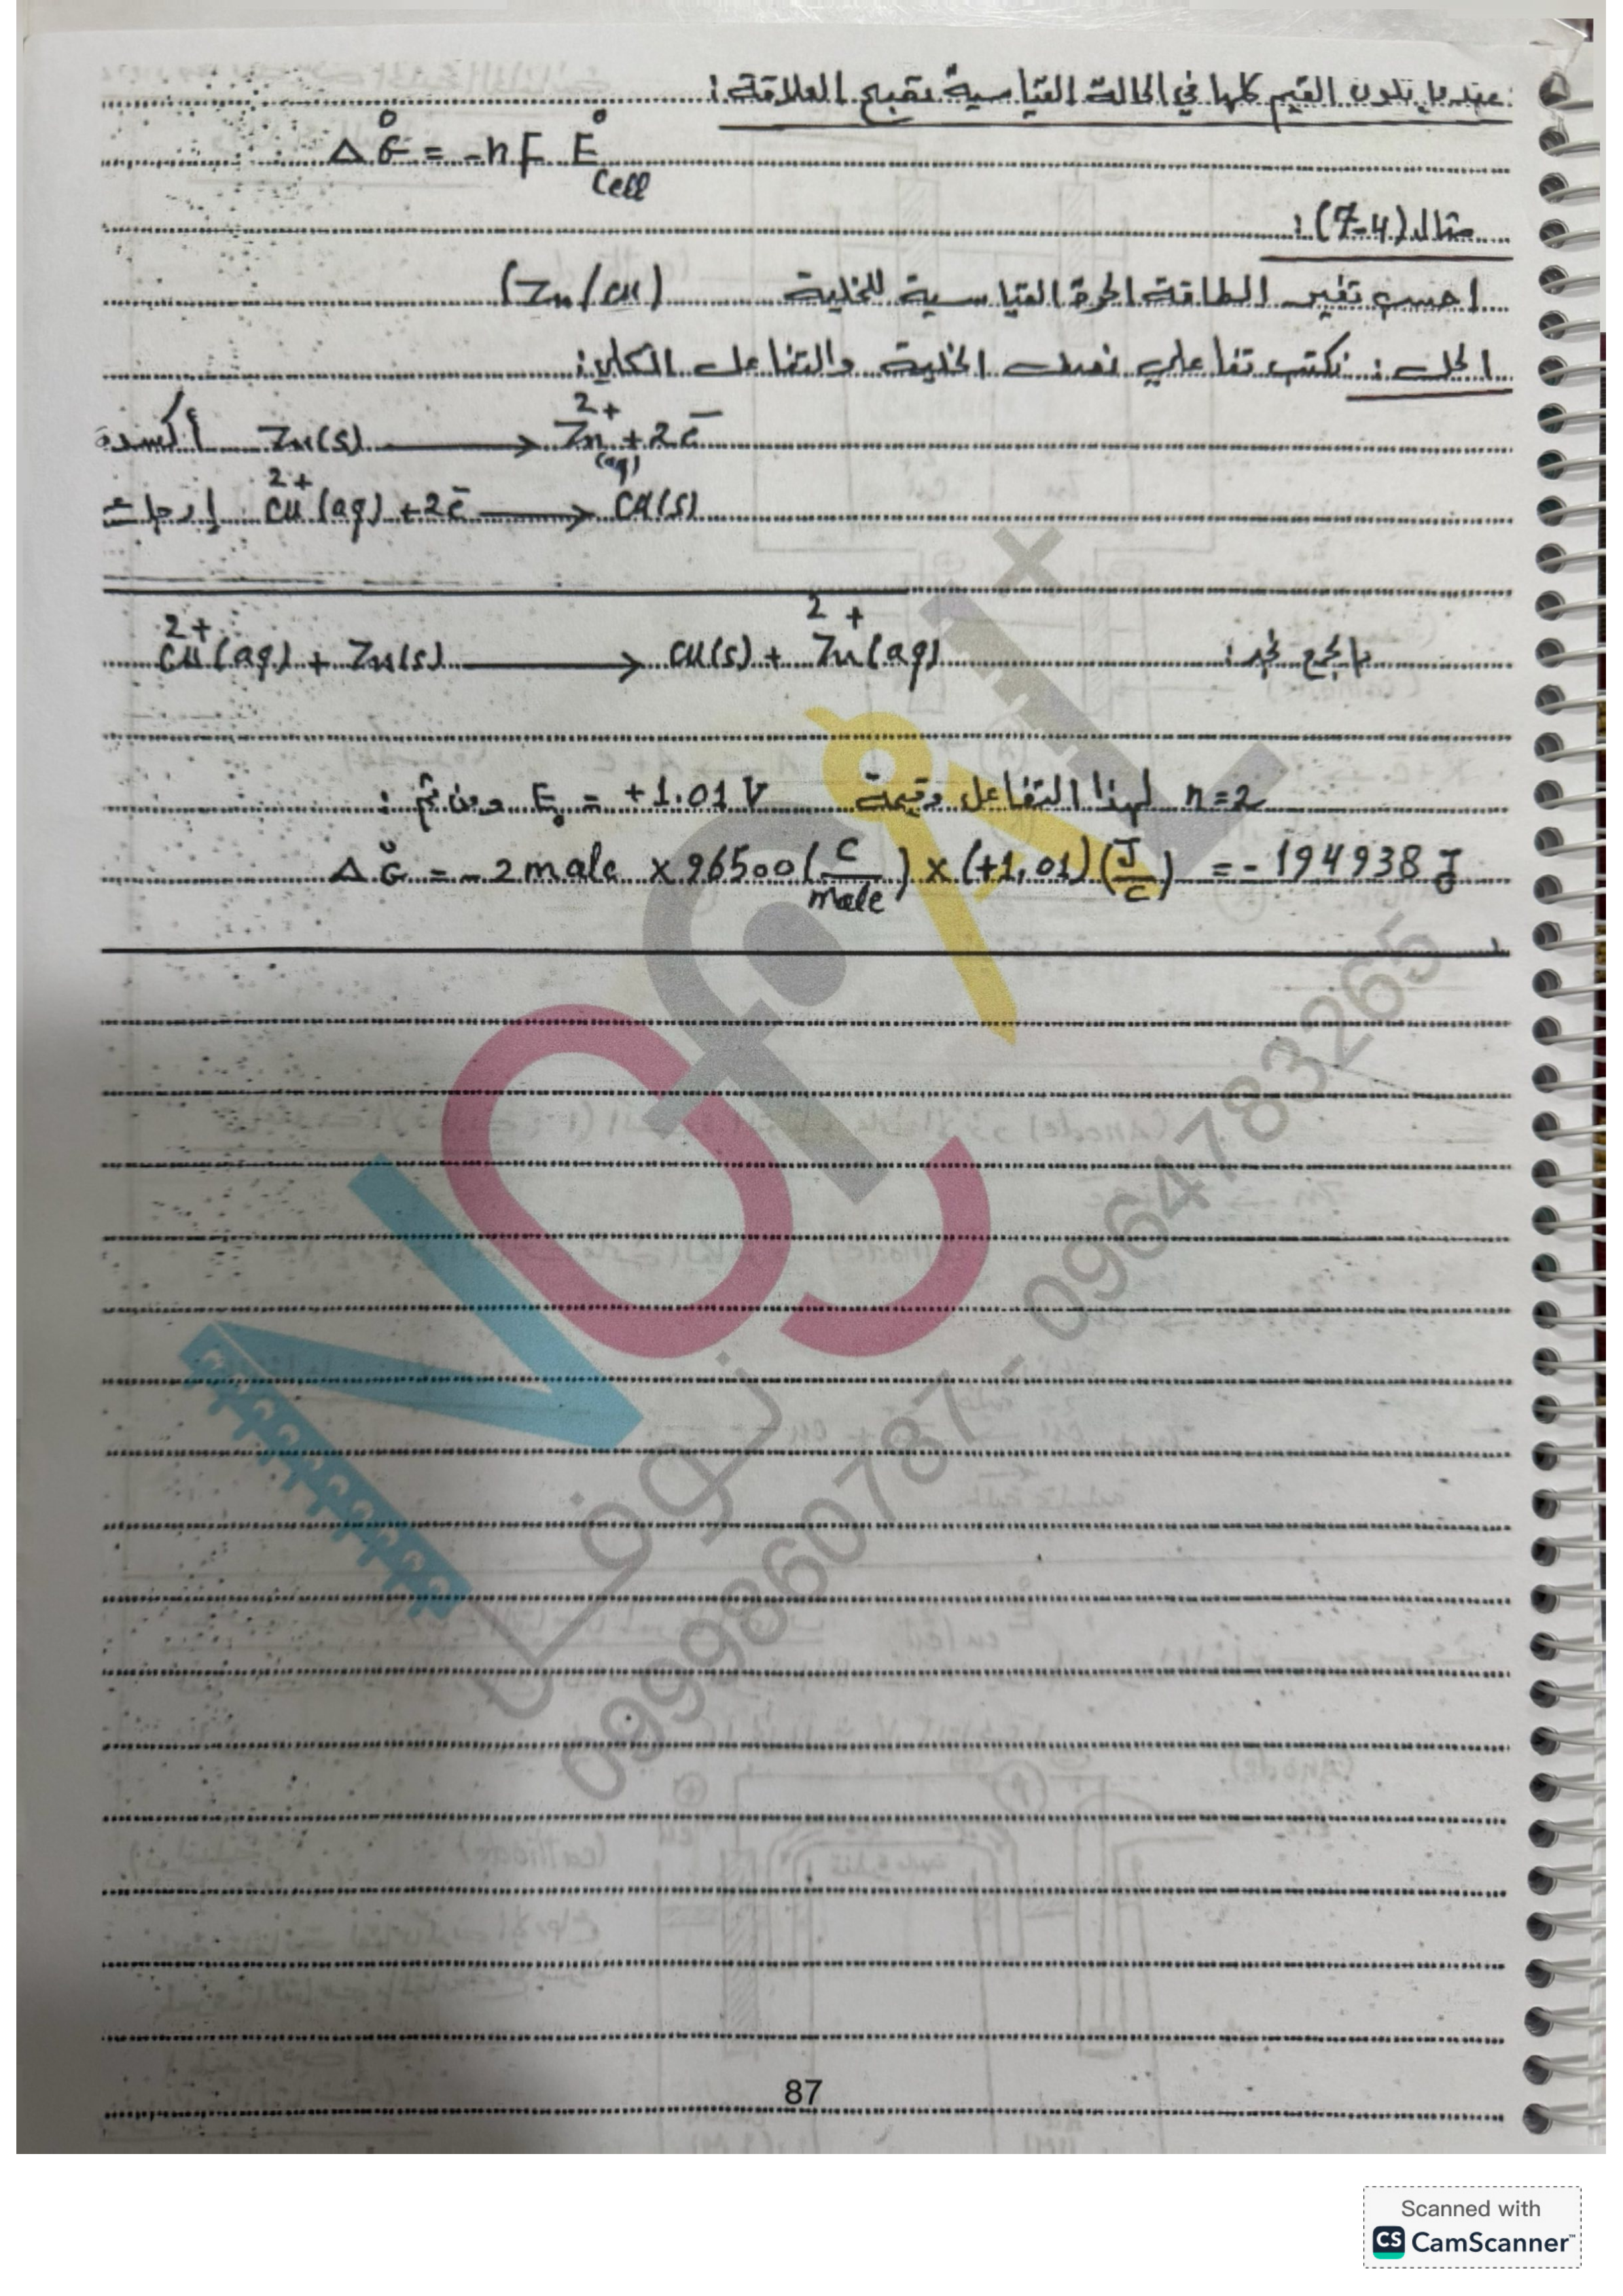 عندما تكون القيم كلها في الحالة القياسية تصبح العلاقة:
ΔG° = -nF E°cell
مثال (7-4):
احسب تغير الطاقة الحرة القياسية للخلية (Zn/Cu)
الحل: نكتب تفاعلي نصف الخلية والتفاعل الكلي:
أكسدة Zn(s) ⟶ Zn²⁺(aq) + 2e⁻
إرجاع Cu²⁺(aq) + 2e⁻ ⟶ Cu(s)
بالجمع نجد: Cu²⁺(aq) + Zn(s) ⟶ Cu(s) + Zn²⁺(aq)
n=2 لهذا التفاعل وقيمة E° = +1.01 V ومن ثم:
ΔG° = -2 mole × 96500 (C/mole) × (+1,01) (J/C) = -194938 J
0999860787 - 0964783265
87
Scanned with
CS CamScanner™